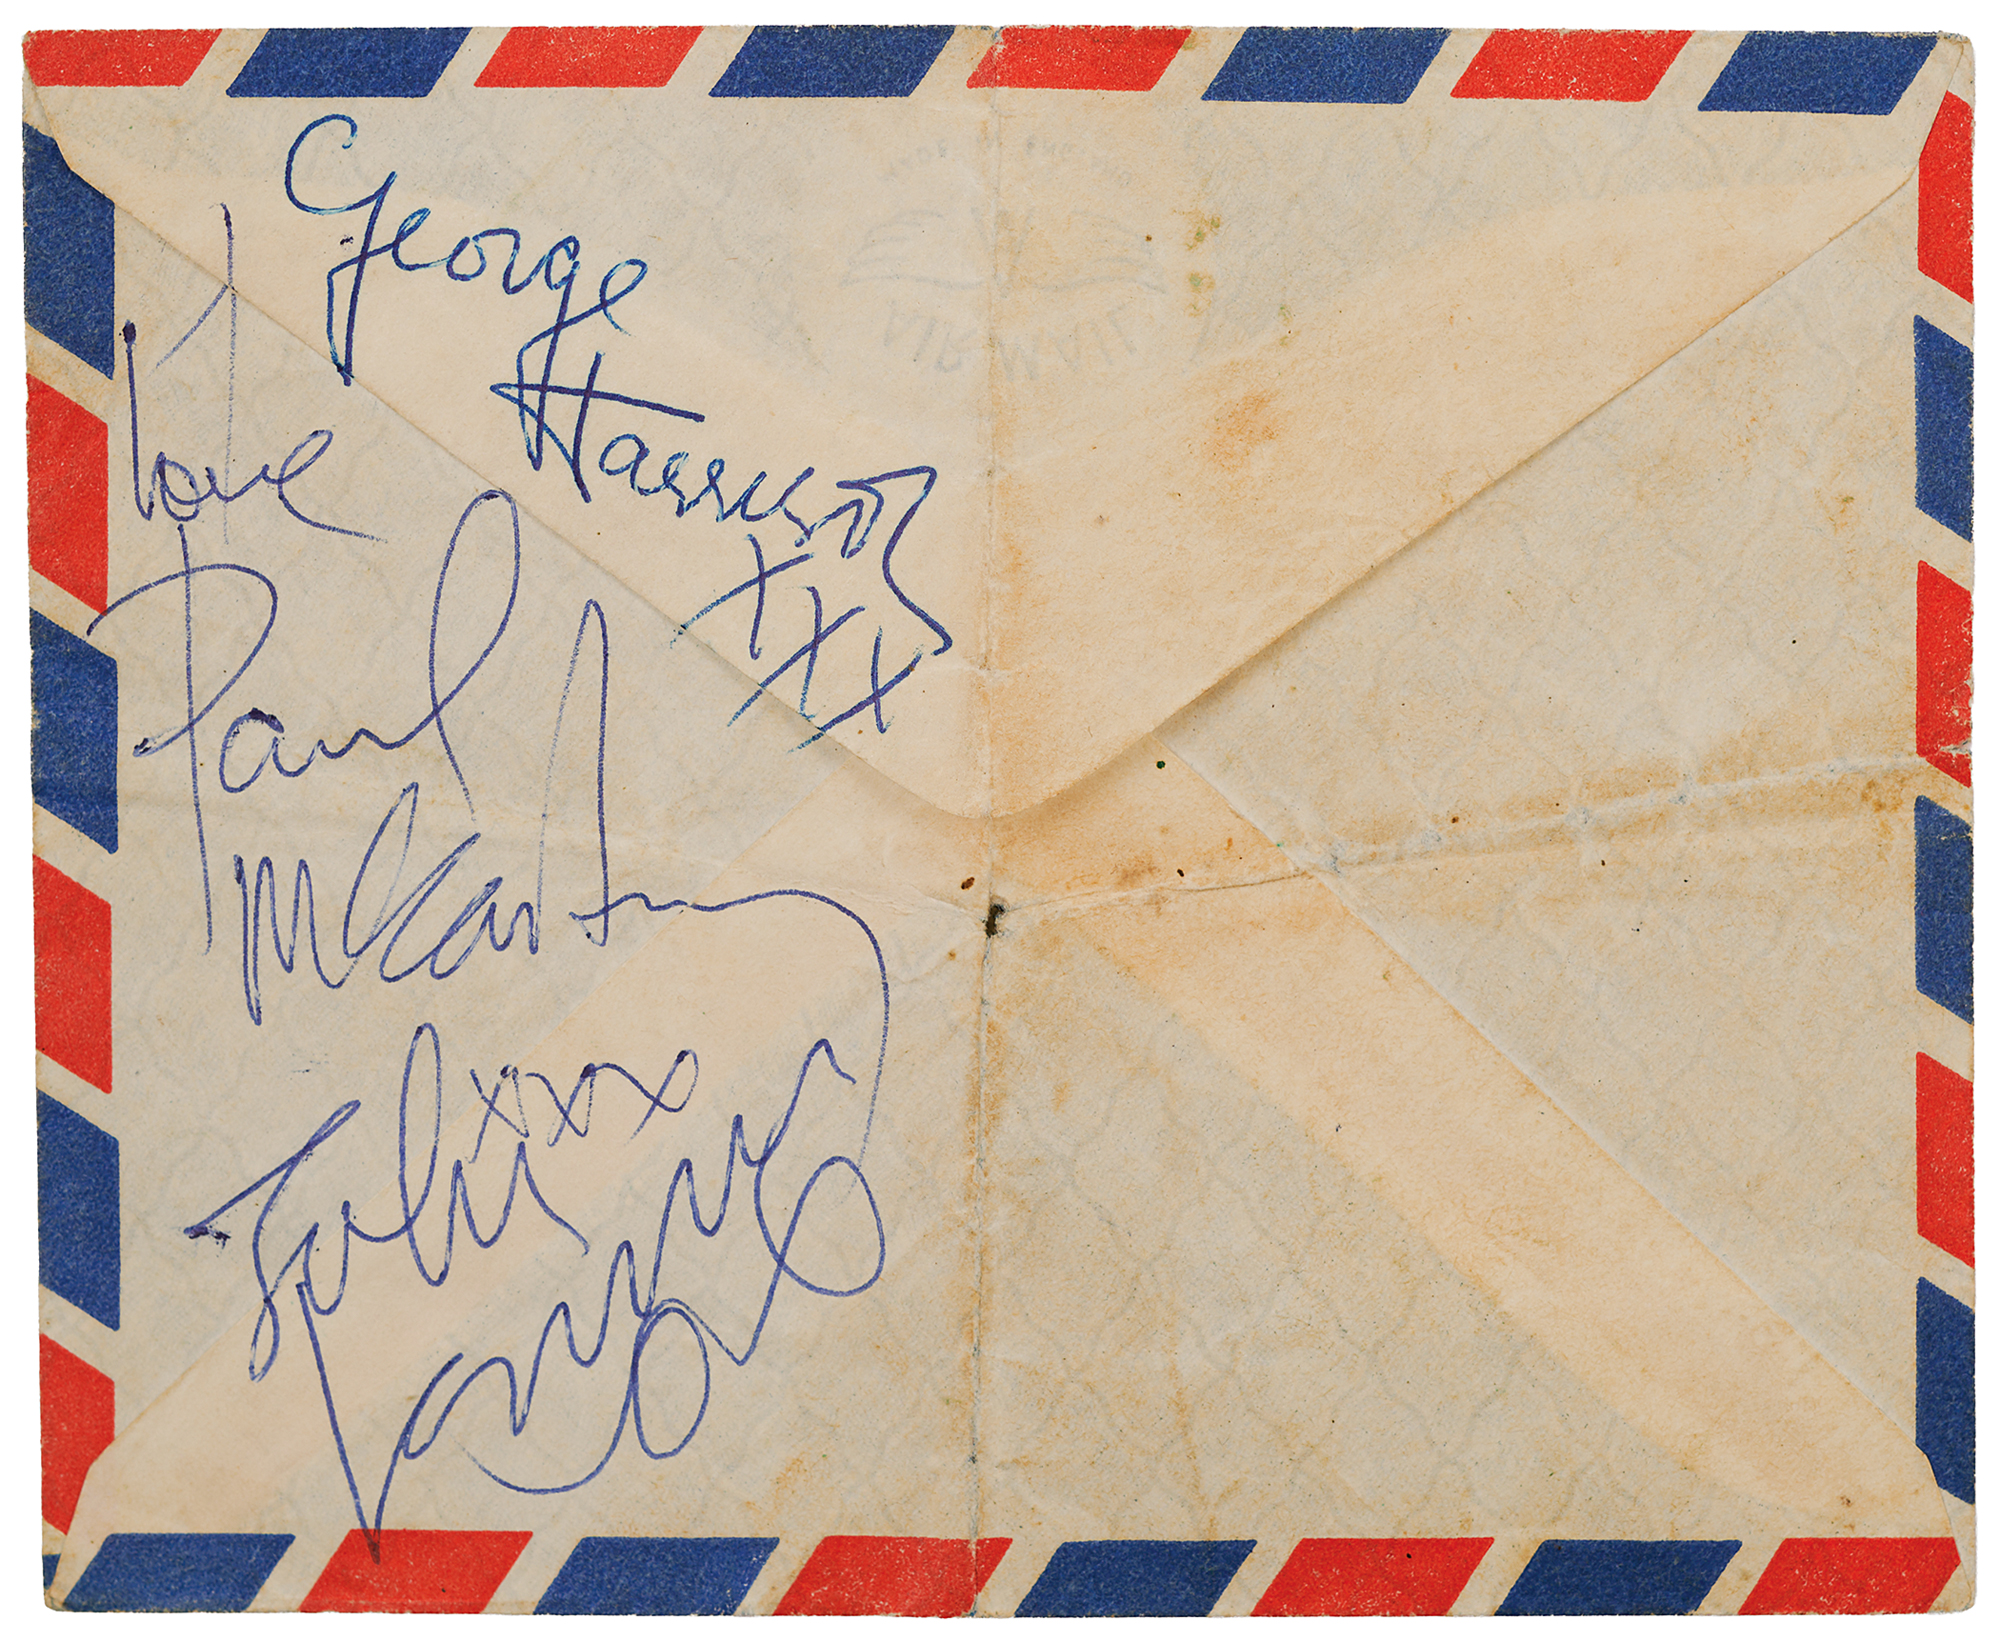 George
Harrison
xxx
love
Paul
McCartney
xxx
John
Lennon